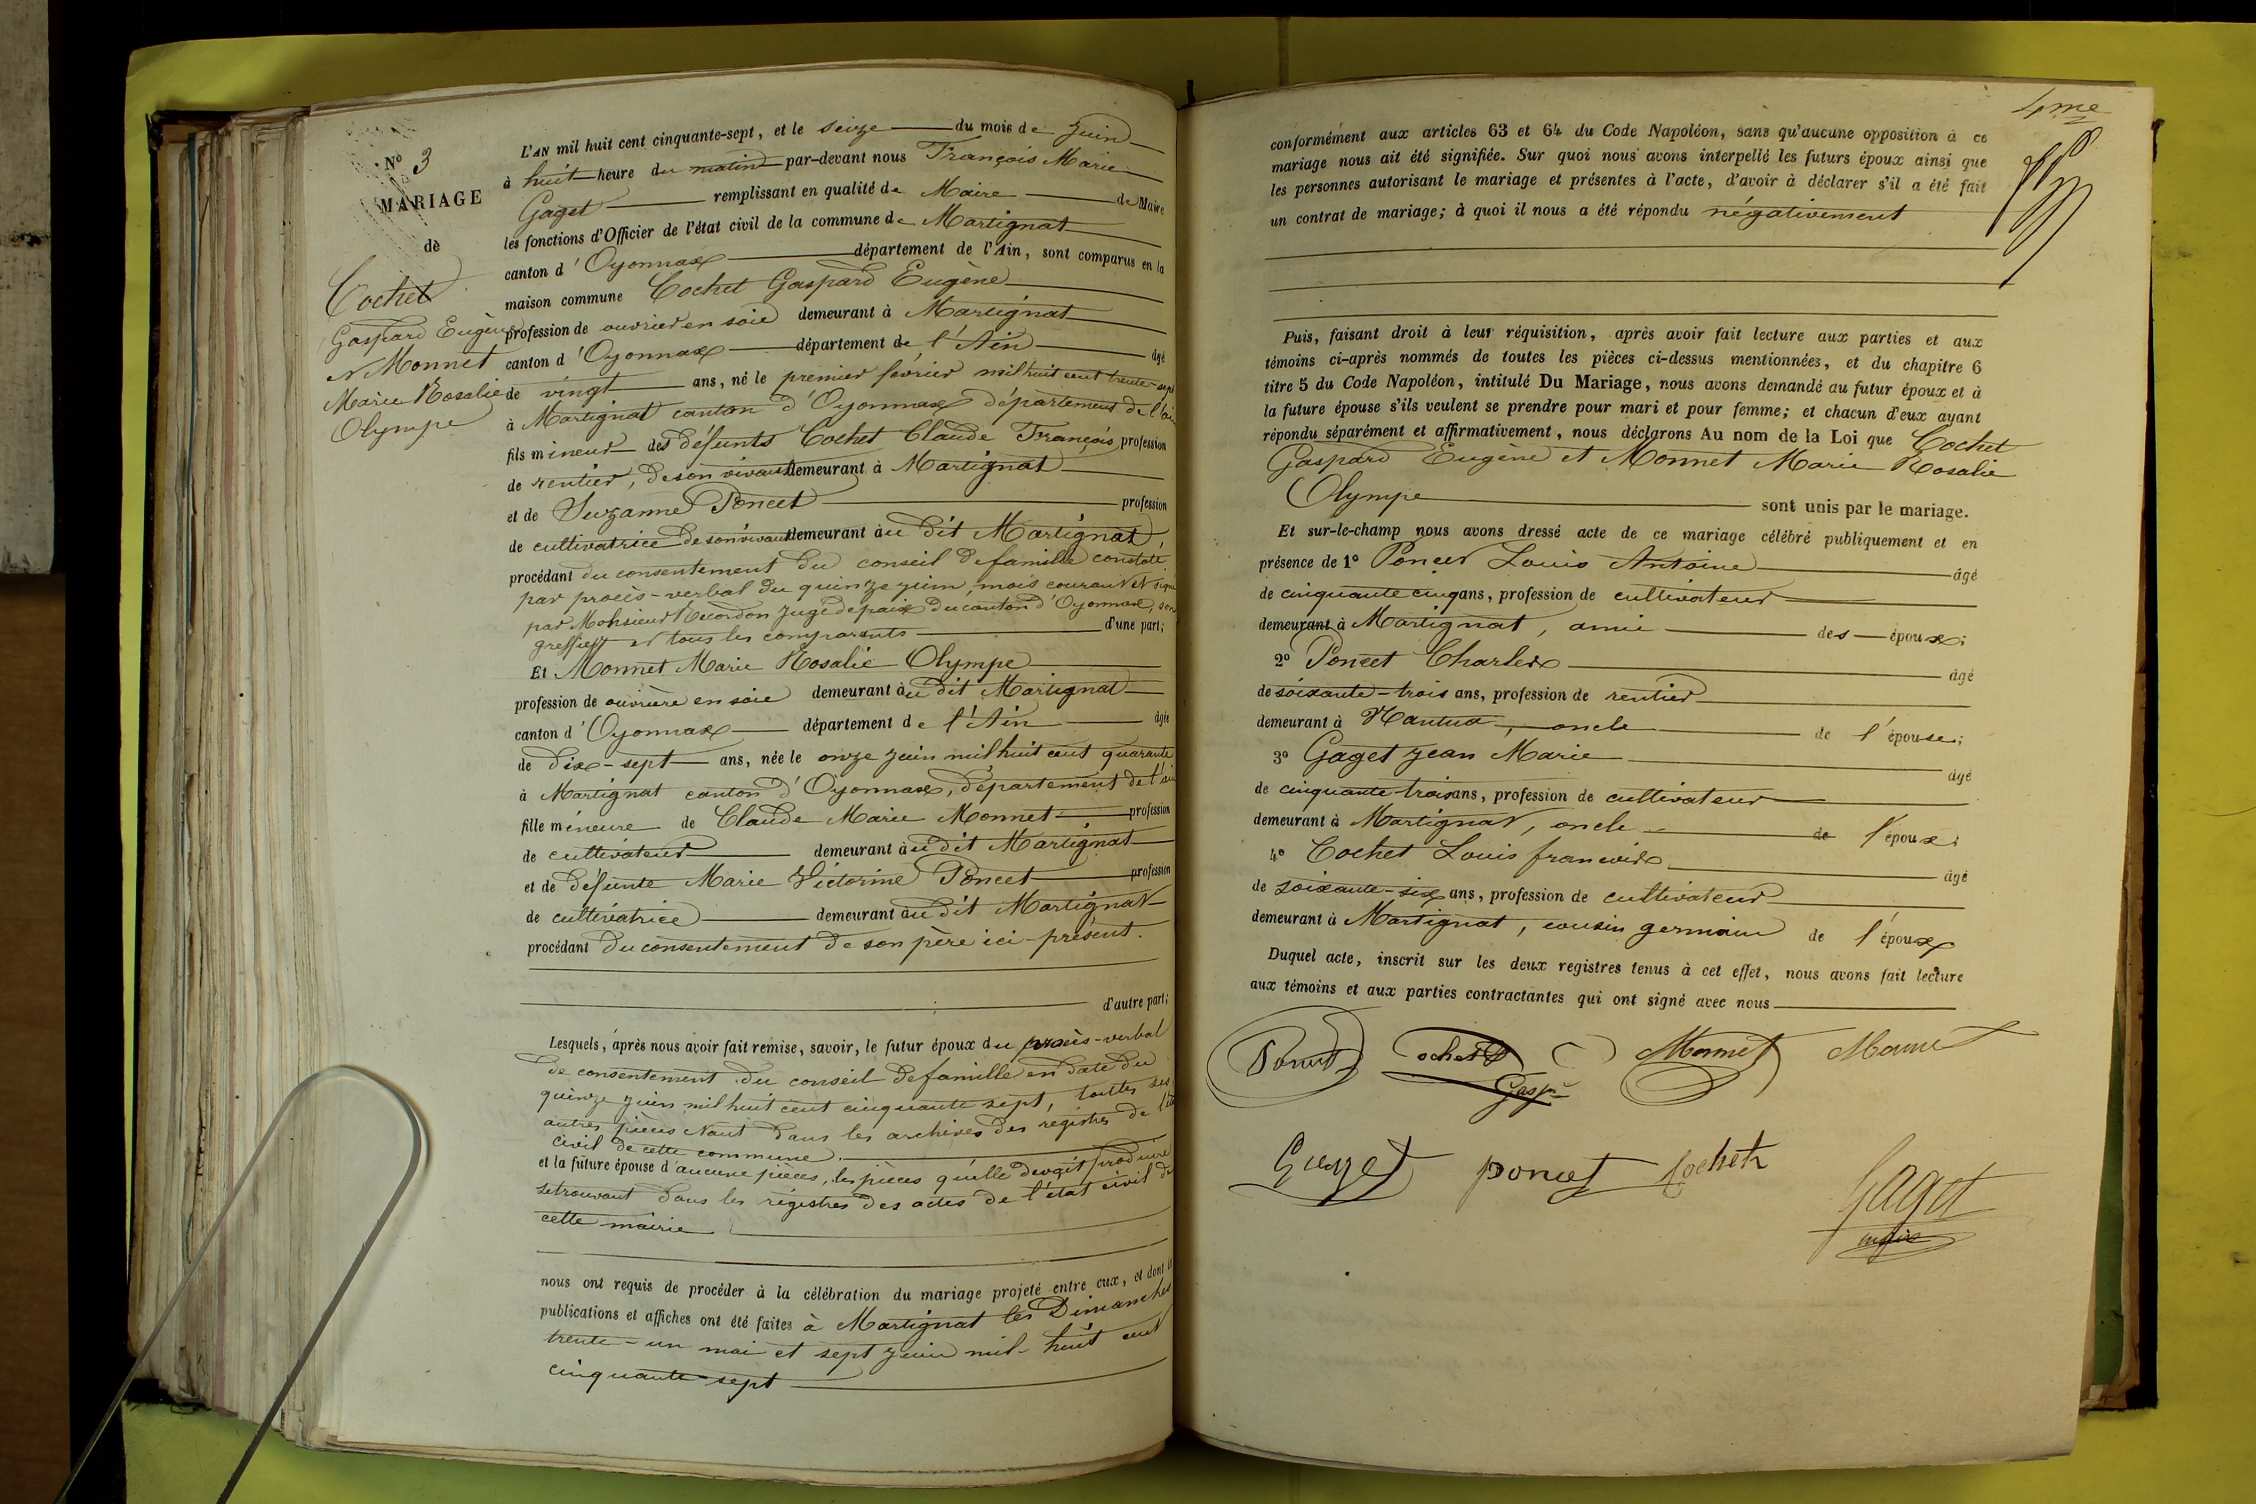 N° 3
MARIAGE
de
Cochet
Gaspard Eugène
et Monnet
Marie Rosalie
Olympe
L'AN mil huit cent cinquante-sept, et le seize du mois de Juin
à huit heure du matin par-devant nous François Marie
Gaget remplissant en qualité de Maire de Maire
les fonctions d'Officier de l'état civil de la commune de Martignat
canton d'Oyonnax département de l'Ain, sont comparus en la
maison commune Cochet Gaspard Eugène
profession de ouvrier en soie demeurant à Martignat
canton d'Oyonnax département de l'Ain âgé
de vingt ans, né le premier février mil huit cent trente-sept
à Martignat canton d'Oyonnax département de l'Ain
fils mineur des défunts Cochet Claude François profession
de rentier, de son vivant demeurant à Martignat
et de Suzanne Poncet profession
de cultivatrice de son vivant demeurant au dit Martignat,
procédant du consentement du conseil de famille constaté
par procès-verbal du quinze juin, mois courant et signé
par Monsieur Recordon juge de paix du canton d'Oyonnax, son
greffier et tous les comparants d'une part;
Et Monnet Marie Rosalie Olympe
profession de ouvrière en soie demeurant au dit Martignat
canton d'Oyonnax département de l'Ain âgée
de dix-sept ans, née le onze juin mil huit cent quarante
à Martignat canton d'Oyonnax, département de l'ain
fille mineure de Claude Marie Monnet profession
de cultivateur demeurant au dit Martignat
et de défunte Marie Victorine Poncet profession
de cultivatrice demeurant au dit Martignat
procédant du consentement de son père ici présent.
d'autre part;
Lesquels, après nous avoir fait remise, savoir, le futur époux du procès-verbal
de consentement du conseil de famille en date du
quinze juin mil huit cent cinquante sept, toutes les
autres pièces étant dans les archives des registres de l'état
civil de cette commune.
et la future épouse d'aucune pièces, les pièces qu'elle devait produire
se trouvant dans les régistres des actes de l'état civil de
cette mairie
nous ont requis de procéder à la célébration du mariage projeté entre eux, et dont les
publications et affiches ont été faites à Martignat les Dimanches
trente-un mai et sept juin mil-huit cent
cinquante-sept
4me
conformément aux articles 63 et 64 du Code Napoléon, sans qu'aucune opposition à ce
mariage nous ait été signifiée. Sur quoi nous avons interpellé les futurs époux ainsi que
les personnes autorisant le mariage et présentes à l'acte, d'avoir à déclarer s'il a été fait
un contrat de mariage; à quoi il nous a été répondu négativement
Puis, faisant droit à leur réquisition, après avoir fait lecture aux parties et aux
témoins ci-après nommés de toutes les pièces ci-dessus mentionnées, et du chapitre 6
titre 5 du Code Napoléon, intitulé Du Mariage, nous avons demandé au futur époux et à
la future épouse s'ils veulent se prendre pour mari et pour femme; et chacun d'eux ayant
répondu séparément et affirmativement, nous déclarons Au nom de la Loi que Cochet
Gaspard Eugène et Monnet Marie Rosalie
Olympe sont unis par le mariage.
Et sur-le-champ nous avons dressé acte de ce mariage célébré publiquement et en
présence de 1° Poncet Louis Antoine âgé
de cinquante cinq ans, profession de cultivateur
demeurant à Martignat, amie des époux;
2° Poncet Charles âgé
de soixante-trois ans, profession de rentier
demeurant à Nantua, oncle de l'épouse;
3° Gaget Jean Marie âgé
de cinquante trois ans, profession de cultivateur
demeurant à Martignat, oncle de l'époux;
4° Cochet Louis françois âgé
de soixante-six ans, profession de cultivateur
demeurant à Martignat, cousin germain de l'époux
Duquel acte, inscrit sur les deux registres tenus à cet effet, nous avons fait lecture
aux témoins et aux parties contractantes qui ont signé avec nous
Poncet Cochet Gasp. Monnet Monnet
poncet Cochet
Gaget
maire